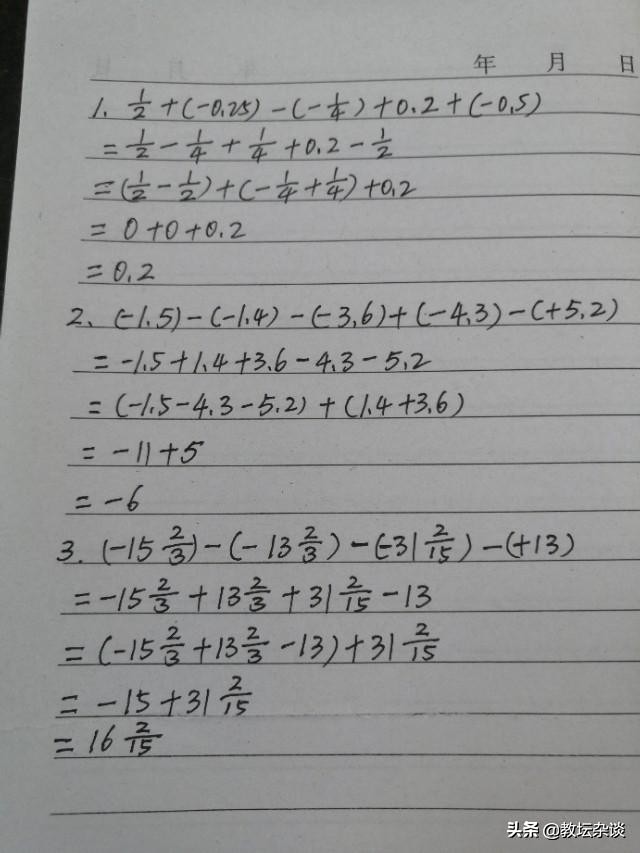 年 月 日
1. 1/2 + (-0.25) - (-1/4) + 0.2 + (-0.5)
= 1/2 - 1/4 + 1/4 + 0.2 - 1/2
= (1/2 - 1/2) + (-1/4 + 1/4) + 0.2
= 0 + 0 + 0.2
= 0.2
2. (-1.5) - (-1.4) - (-3.6) + (-4.3) - (+5.2)
= -1.5 + 1.4 + 3.6 - 4.3 - 5.2
= (-1.5 - 4.3 - 5.2) + (1.4 + 3.6)
= -11 + 5
= -6
3. (-15 2/3) - (-13 2/3) - (-31 2/15) - (+13)
= -15 2/3 + 13 2/3 + 31 2/15 - 13
= (-15 2/3 + 13 2/3 - 13) + 31 2/15
= -15 + 31 2/15
= 16 2/15
头条 @教坛杂谈